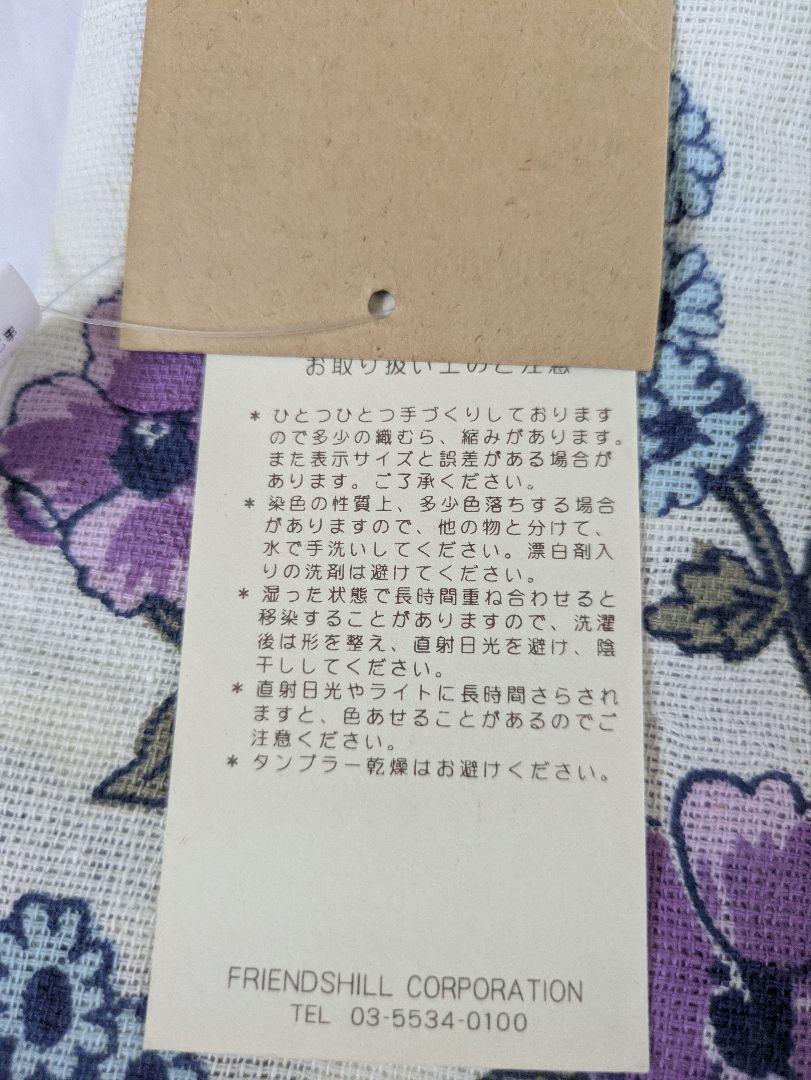 お取り扱い上のご注意
* ひとつひとつ手づくりしております
ので多少の織むら、縮みがあります。
また表示サイズと誤差がある場合が
あります。ご了承ください。
* 染色の性質上、多少色落ちする場合
がありますので、他の物と分けて、
水で手洗いしてください。漂白剤入
りの洗剤は避けてください。
* 湿った状態で長時間重ね合わせると
移染することがありますので、洗濯
後は形を整え、直射日光を避け、陰
干ししてください。
* 直射日光やライトに長時間さらされ
ますと、色あせることがあるのでご
注意ください。
* タンブラー乾燥はお避けください。
FRIENDSHILL CORPORATION
TEL 03-5534-0100